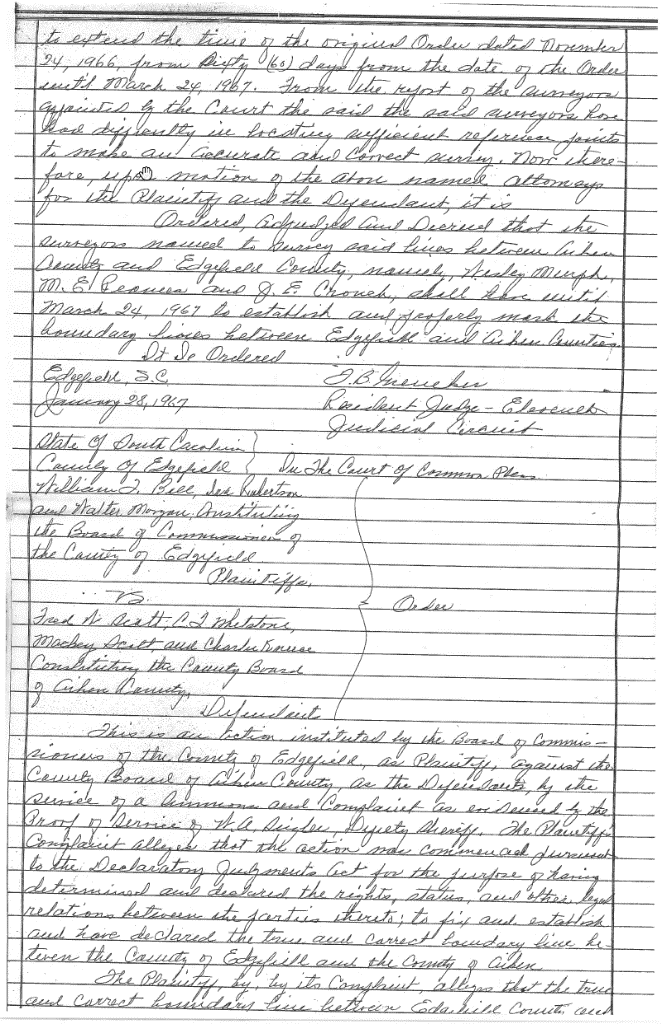 to extend the time of the original Order dated November
24, 1966, from Sixty (60) days from the date of the Order
until March 24, 1967. From the report of the surveyors
appointed by the Court the said the said surveyors have
had difficulty in locating sufficient reference points
to make an accurate and correct survey. Now there-
fore, upon motion of the above named attorneys
for the Plaintiff and the Defendant, it is
Ordered, Adjudged and Decreed that the
surveyors named to survey said lines between Aiken
County and Edgefield County, namely, Wesley
M. E. and J. E. Crouch, shall have until
March 24, 1967 to establish and properly mark the
boundary lines between Edgefield and Aiken Counties.
It Is Ordered
Edgefield, S.C.
January 28, 1967
T. B. Greneker
Resident Judge - Eleventh
Judicial Circuit
State Of South Carolina
County Of Edgefield
In The Court Of Common Pleas
William T. Bell, Robertson
and Walter Morgan, Constituting
the Board of Commissioners of
the County of Edgefield
Plaintiffs,
vs.
Order
Fred N Scott, C. I Whetstone,
Mackey Scott and Charlie
Constituting the County Board
of Aiken County,
Defendants
This is an action instituted by the Board of Commis-
sioners of the County of Edgefield, as Plaintiff, against the
County Board of Aiken County, as the Defendants, by the
service of a Summons and Complaint as evidenced by the
Proof of Service of W. A. Deputy Sheriff. The Plaintiffs
Complaint alleges that the action was commenced pursuant
to the Declaratory Judgments Act for the purpose of having
determined and declared the rights, status, and other legal
relations between the parties thereto; to fix and establish
and have declared the true and correct boundary line be-
tween the County of Edgefield and the County of Aiken.
The Plaintiff, by, by its Complaint, alleges that the true
and correct boundary line between Edgefield County and